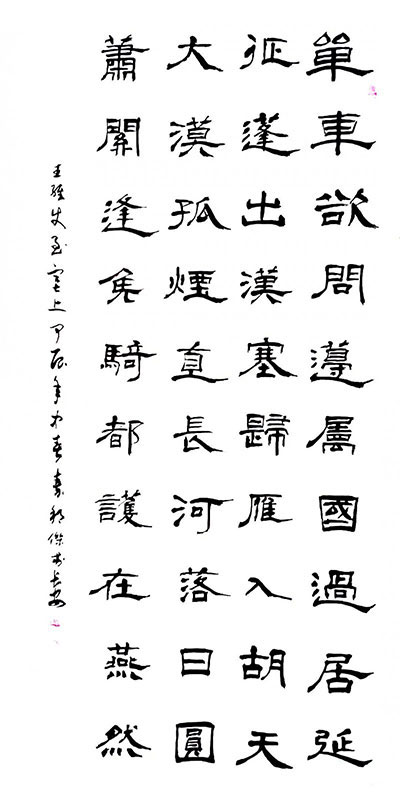 單車欲問邊屬國過居延
征蓬出漢塞歸雁入胡天
大漠孤煙直長河落日圓
蕭關逢侯騎都護在燕然
王維使至塞上甲年春傑於長安